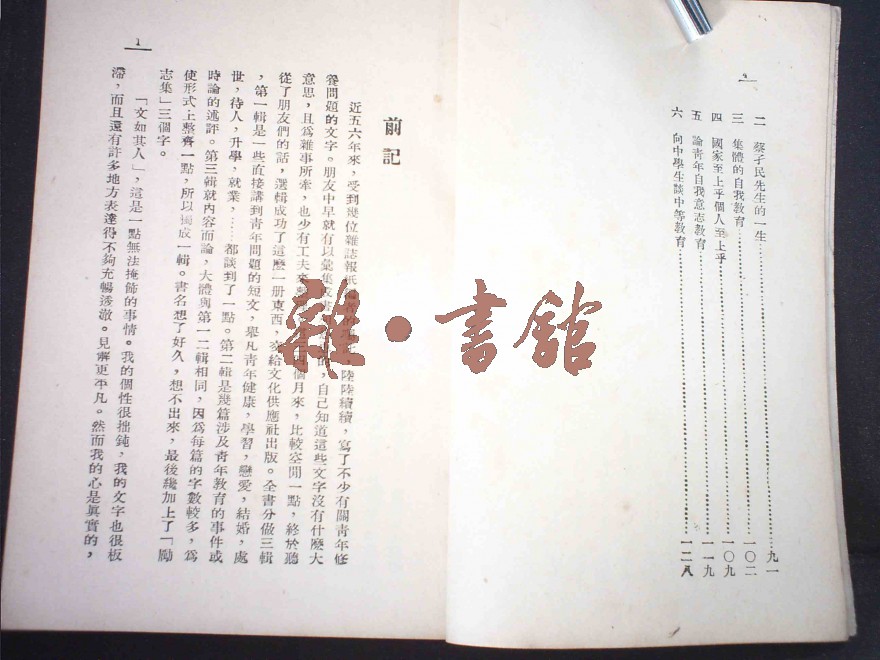 2
二　蔡孑民先生的一生……九一
三　集體的自我教育……一〇二
四　國家至上乎個人至上乎……一〇九
五　論青年自我意志教育……一一九
六　向中學生談中等教育……一二八
1
前記
近五六年來，受到幾位雜誌報紙，陸陸續續，寫了不少有關青年修
養問題的文字。朋友中早就有以彙集成的，自己知道這些文字沒有什麼大
意思，且爲雜事所牽，也少有工夫來個月來，比較空閒一點，終於聽
從了朋友們的話，選輯成功了這麼一册東西，交給文化供應社出版。全書分做三輯
，第一輯是一些直接講到青年問題的短文，舉凡青年健康，學習，戀愛，結婚，處
世，待人，升學，就業，……都談到了一點。第二輯是幾篇涉及青年教育的事件或
時論的述評。第三輯就內容而論，大體與第一二輯相同，因爲每篇的字數較多，爲
使形式上整齊一點，所以獨成一輯。書名想了好久，想不出來，最後纔加上了「勵
志集」三個字。
「文如其人」，這是一點無法掩飾的事情。我的個性很拙鈍，我的文字也很板
滯，而且還有許多地方表達得不夠充暢透澈。見解更平凡。然而我的心是眞實的，
雜•書館